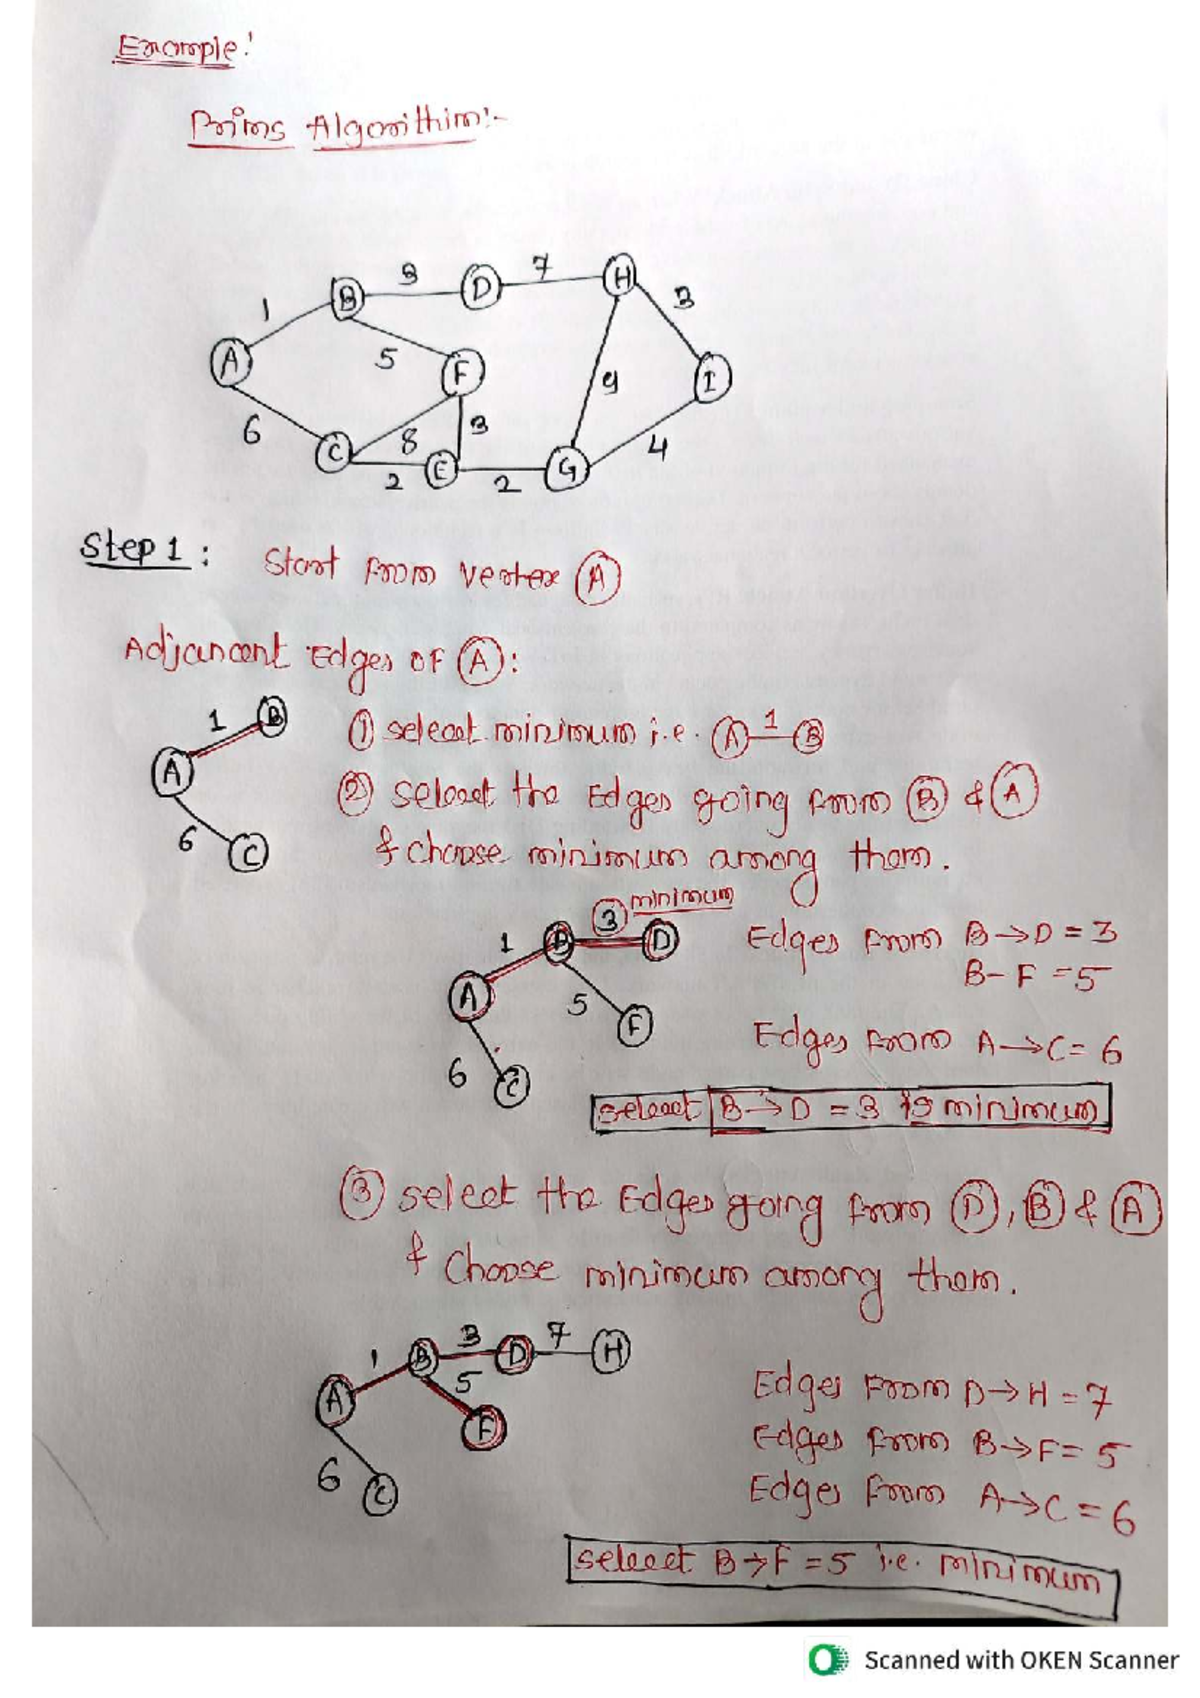 Example:
Prims Algorithim:-
1
B
3
D
7
H
3
A
5
F
9
I
6
C
8
3
E
G
4
2
2
Step 1 : Start from vertex A
Adjancent Edges of A :
1 B
A
6 C
① seleeat minimum i.e. A 1 B
② seleeat the Edges going from B & A
& choose minimum among them.
3 minimum
1 B D
A 5 F
6 C
Edges from B→D = 3
B- F = 5
Edges from A→C= 6
seleeat B→D = 3 is minimum
③ seleet the Edges going from D, B & A
& choose minimum among them.
1 B 3 D 7 H
A 5 F
6 C
Edges from D→H = 7
Edges from B→F= 5
Edges from A→C = 6
seleeet B→F = 5 i.e. minimum
Scanned with OKEN Scanner